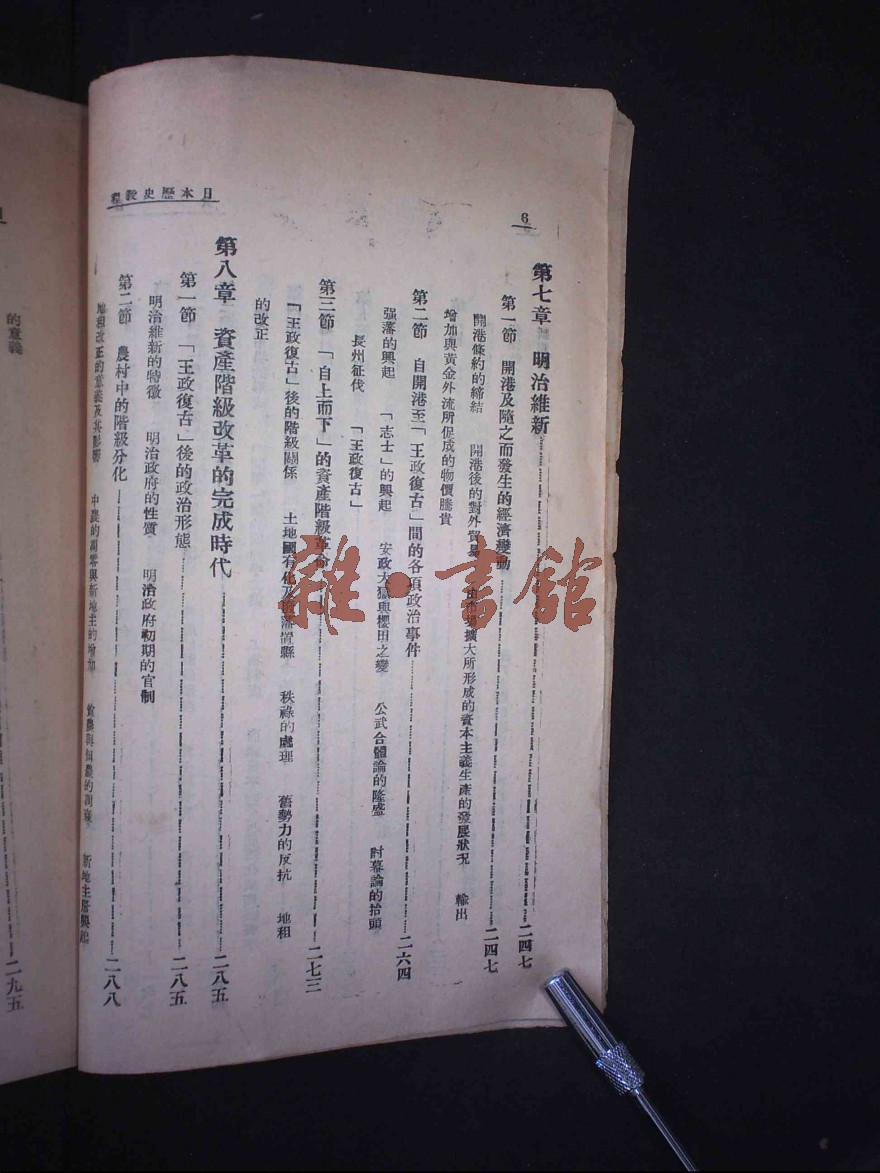 日本歷史教程
6
第七章 明治維新 二四七
第一節 開港及隨之而發生的經濟變動 二四七
開港條約的締結 開港後的對外貿易 擴大所形成的資本主義生產的發展狀況 輸出
增加與黃金外流所促成的物價騰貴
第二節 自開港至「王政復古」間的各項政治事件 二六四
强藩的興起 「志士」的興起 安政大獄與櫻田之變 公武合體論的隆盛 討幕論的抬頭
長州征伐 「王政復古」
第三節 「自上而下」的資產階級革命 二七三
「王政復古」後的階級關係 土地國有化及廢藩置縣 秩祿的處理 舊勢力的反抗 地租
的改正
第八章 資產階級改革的完成時代 二八五
第一節 「王政復古」後的政治形態 二八五
明治維新的特徵 明治政府的性質 明治政府初期的官制
第二節 農村中的階級分化 二八八
地租改正的意義及其影響 中農的凋零與新地主的增加 貧農與佃農的 新地主層興起
的意義
二九五
雜·書館